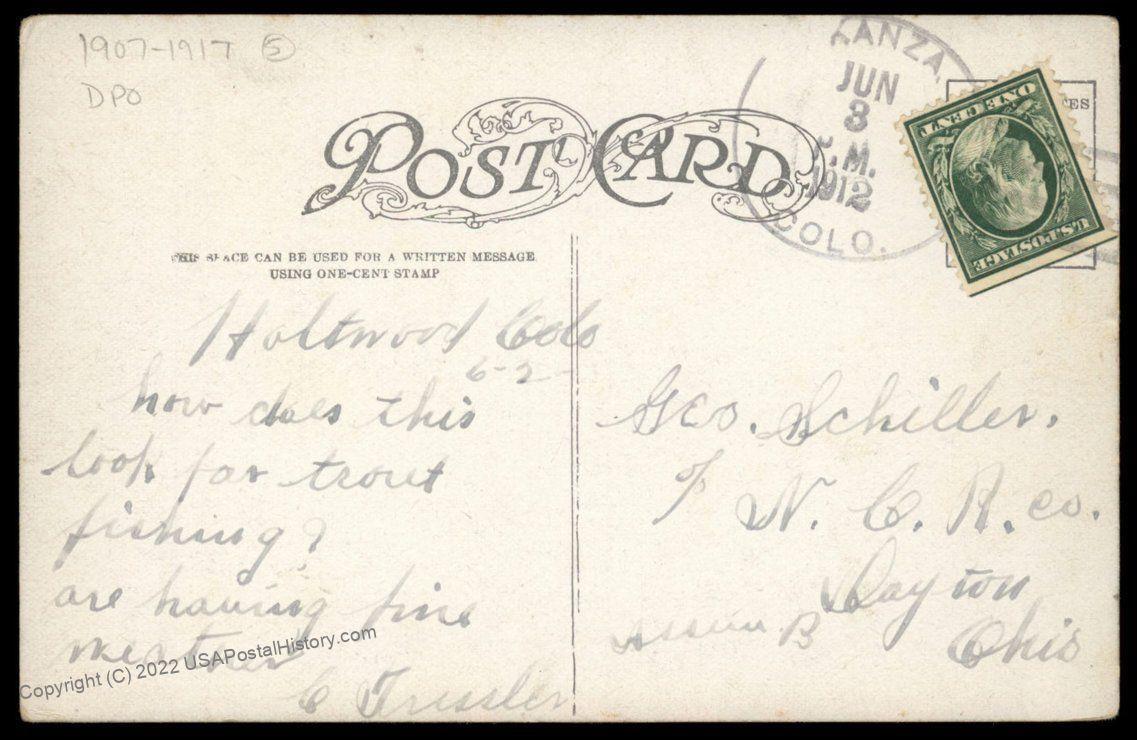 1907-1917 5
DPO
POST CARD
THIS SPACE CAN BE USED FOR A WRITTEN MESSAGE
USING ONE-CENT STAMP
KANZA
JUN
3
.M.
1912
COLO.
ONE CENT
U.S.POSTAGE
Holtwood Colo
6-2-
how does this
look for trout
fishing?
are having fine
weather
C Tressler
Geo. Schiller.
N. C. R. co.
Dayton
B
Ohio
Copyright (C) 2022 USAPostalHistory.com